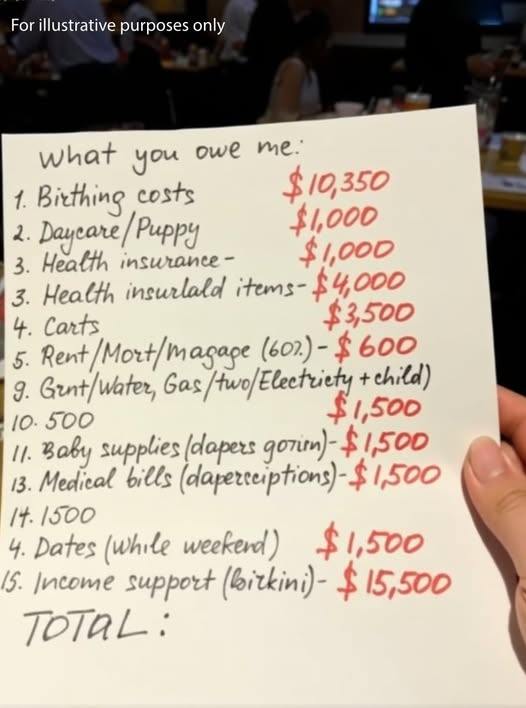 For illustrative purposes only
What you owe me:
1. Birthing costs $10,350
2. Daycare/Puppy $1,000
3. Health insurance- $1,000
3. Health insurlald items- $4,000
4. Carts $3,500
5. Rent/Mort/magage (60%)- $600
9. Grnt/Water, Gas/two/Electriety + child)
10. 500 $1,500
11. Baby supplies (dapers gorin)- $1,500
13. Medical bills (daperseiptions)- $1,500
14. 1500
4. Dates (while weekend) $1,500
15. Income support (birkini)- $15,500
TOTAL: